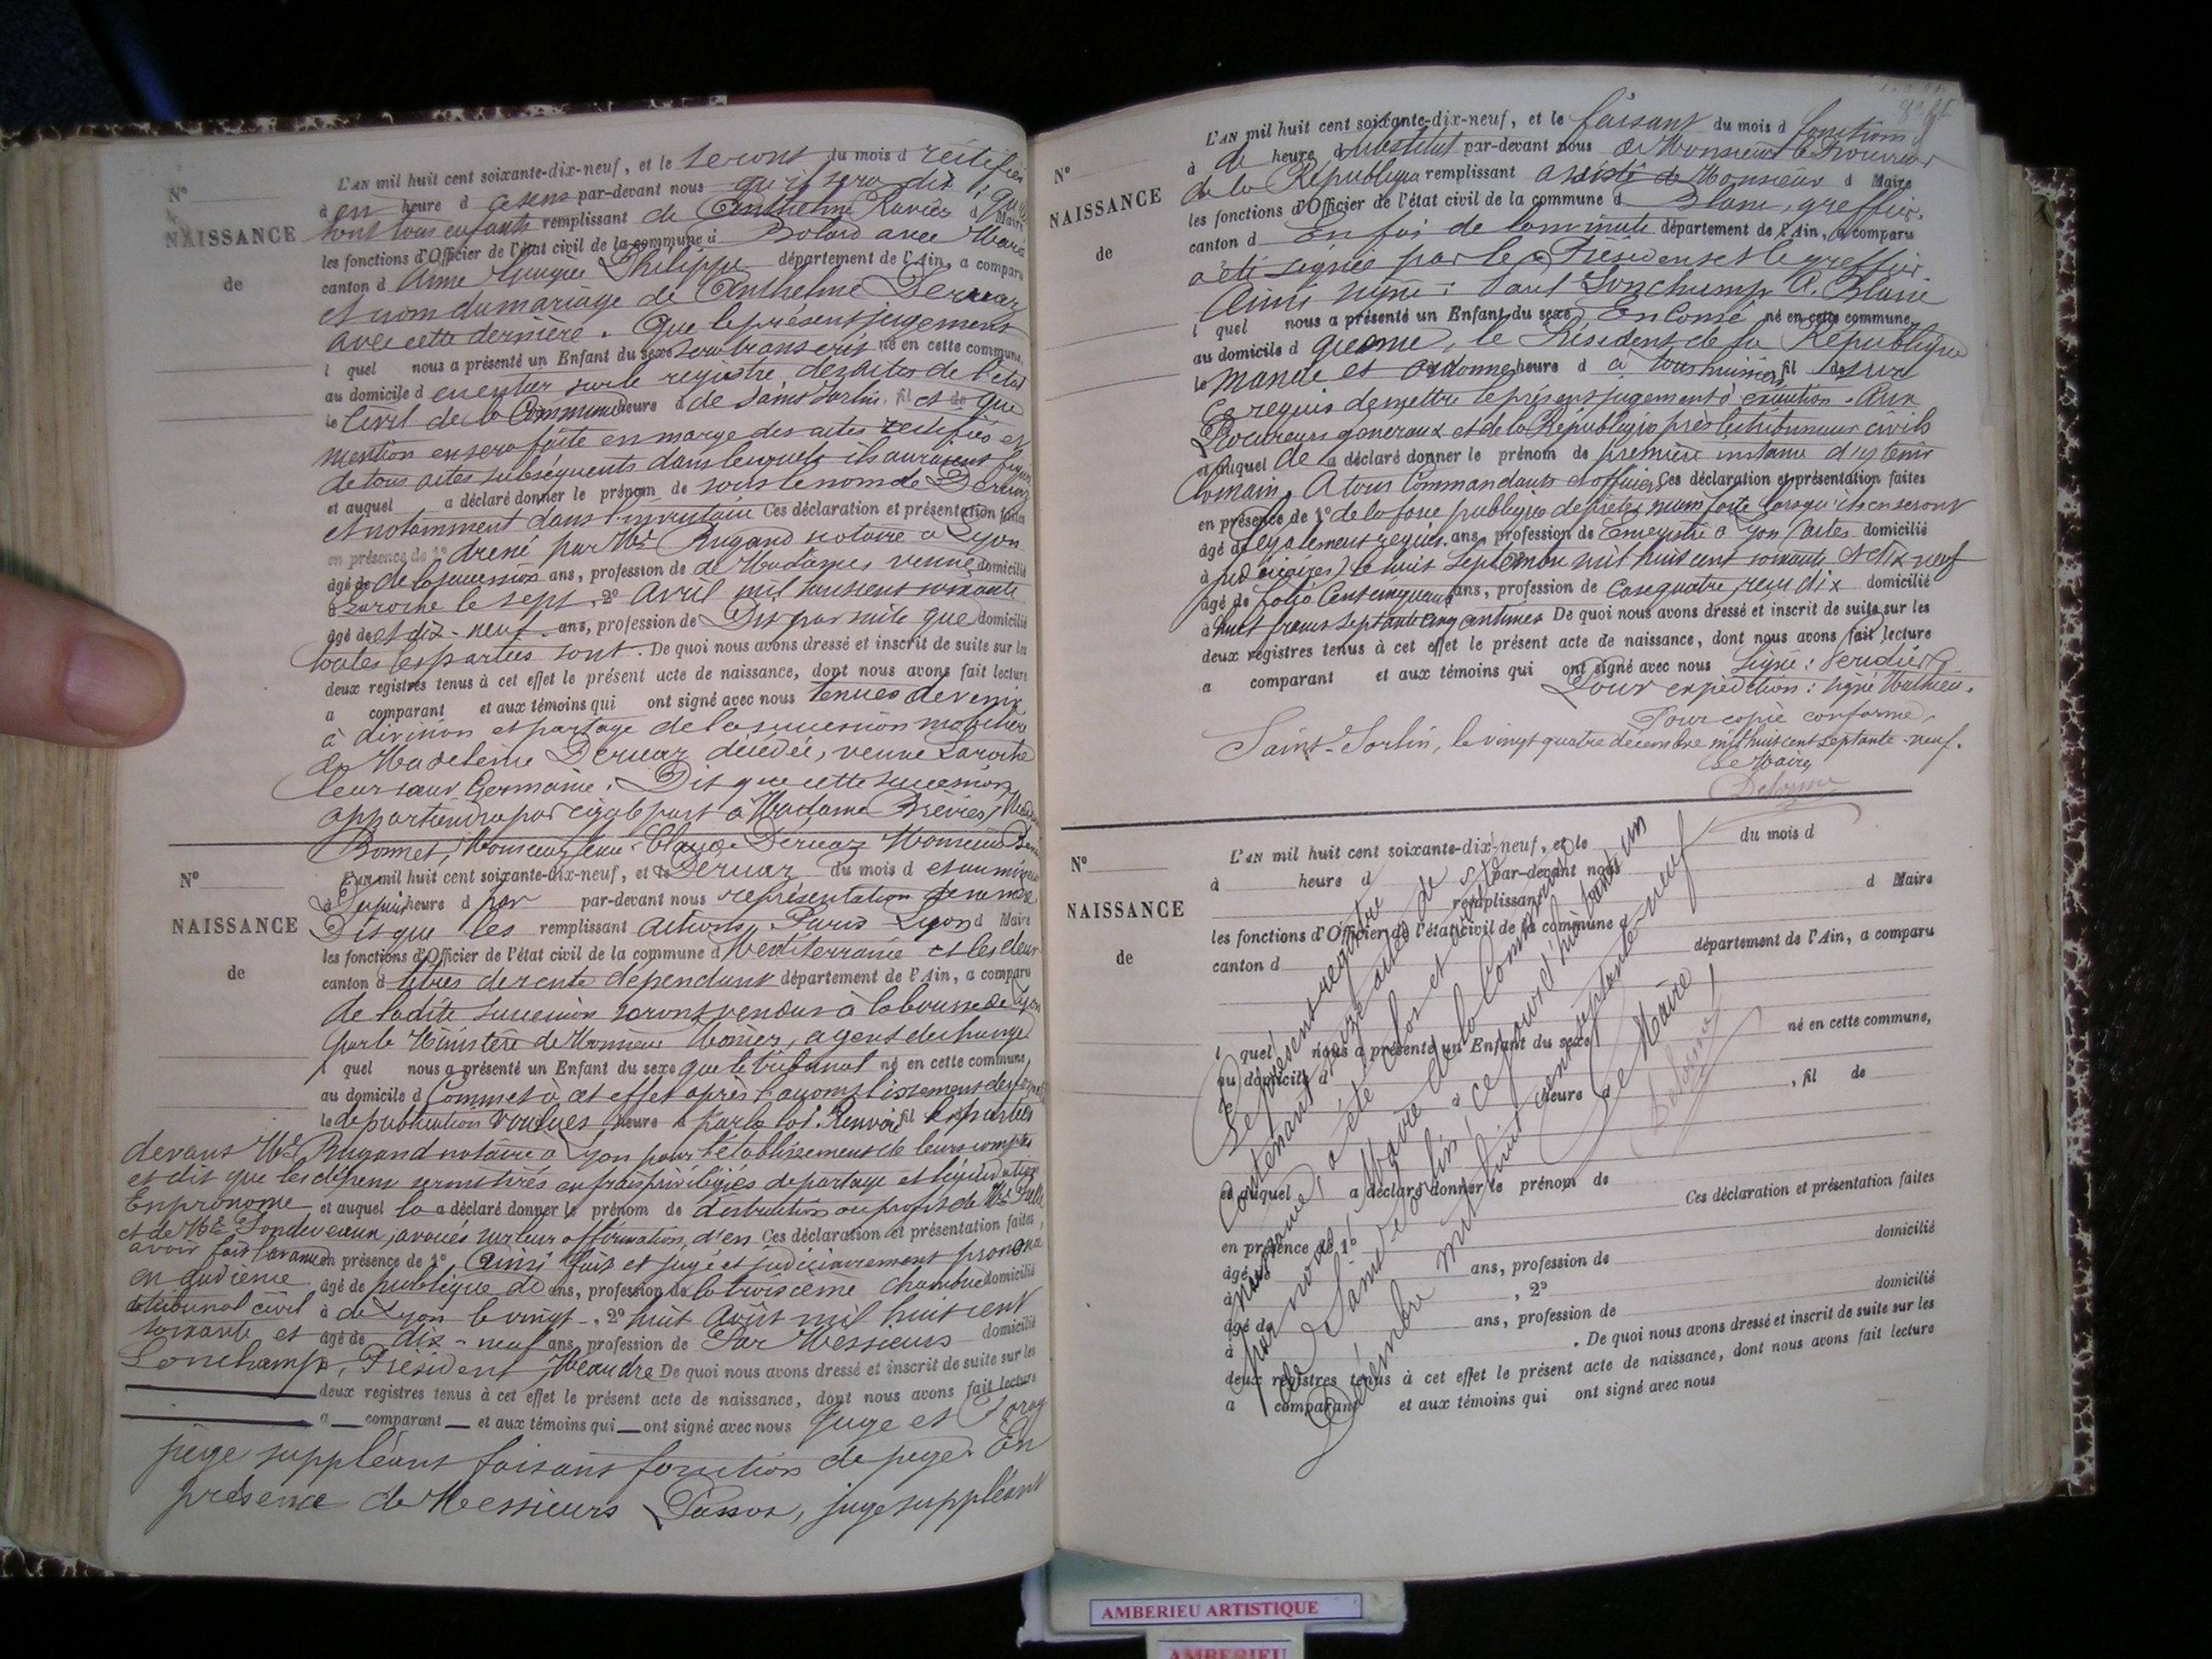 N°
NAISSANCE
de
L'AN mil huit cent soixante-dix-neuf, et le seront du mois d rectifiés
à en heure d ce sens par-devant nous qu'il sera dit qu'ils
sont tous enfants remplissant de Anthelme Ravier d Maire
les fonctions d'Officier de l'état civil de la commune d Bolard avec Marie
canton d Anne Philippe département de l'Ain, a comparu
et non du mariage de Anthelme Deruaz
avec cette dernière. Que le présent jugement
l quel nous a présenté un Enfant du sexe sera transcrit né en cette commune,
au domicile d en entier sur le registre des actes de l'état
le Civil de la Commune heure d de Saint Sorlin, fil et de que
mention en sera faite en marge des actes rectifiés et
de tous actes subséquents dans lesquels ils auraient figuré
et auquel a déclaré donner le prénom de sous le nom de Deruaz
et notamment dans l'inventaire Ces déclaration et présentation faites
en présence de 1° dressé par Me Rugand notaire à Lyon
âgé de de la succession ans, profession de de Madame veuve domicilié
à Laroche le sept, 2° avril mil huit cent soixante
âgé de et dix-neuf ans, profession de Dit par suite que domicilié
toutes les parties sont. De quoi nous avons dressé et inscrit de suite sur les
deux registres tenus à cet effet le présent acte de naissance, dont nous avons fait lecture
a comparant et aux témoins qui ont signé avec nous tenues de venir
à division et partage de la succession mobilière
de Madeleine Deruaz décédée, veuve Laroche
leur sœur Germaine; Dit que cette succession
appartiendra par égale part à Madame
Bonnet, Monsieur Jean-Claude Deruaz Monsieur
N°
NAISSANCE
de
L'AN mil huit cent soixante-dix-neuf, et le Deruaz du mois d et au mineur
à heure d par par-devant nous représentation de sa mère
Dit que les remplissant actions Paris Lyon d Maire
les fonctions d'Officier de l'état civil de la commune d Méditerranée et les deux
canton d titres de rente dépendant département de l'Ain, a comparu
de ladite succession seront vendus à la bourse de Lyon
par le Ministère de Monsieur Monier, agent de change
l quel nous a présenté un Enfant du sexe que le tribunal né en cette commune,
au domicile d Commet à cet effet après l'accomplissement des
le de publication voulues heure d par la loi. Renvoie fil les parties
devant Me Rugand notaire à Lyon pour l'établissement de leurs comptes
et dit que les dépens seront tirés en frais privilégiés de partage et liquidation
En prononce et auquel la a déclaré donner le prénom de distraction au profit de Me
et de Me Londeveaux, avoués sur leur affirmation d'en Ces déclaration et présentation faites,
avoir fait l'avance en présence de 1° Ainsi fait et jugé et judiciairement prononcé
en audience âgé de publique de ans, profession de la troisième chambre domicilié
du tribunal civil à de Lyon le vingt-, 2° huit Août mil huit cent
soixante et âgé de dix-neuf ans, profession de Par Messieurs domicilié
Lonchamp, Président, Meaudre De quoi nous avons dressé et inscrit de suite sur les
deux registres tenus à cet effet le présent acte de naissance, dont nous avons fait lecture
a comparant et aux témoins qui ont signé avec nous Juge et
juge suppléant faisant fonction de juge. En
présence de Messieurs juge suppléant
N°
NAISSANCE
de
L'AN mil huit cent soixante-dix-neuf, et le faisant du mois d fonctions
à de heure d substitut par-devant nous de Monsieur le Procureur
de la République remplissant assisté de Monsieur d Maire
les fonctions d'Officier de l'état civil de la commune d Blanc, greffier.
canton d En foi de la minute département de l'Ain, a comparu
a été signée par le Président et le greffier.
Ainsi signé: Paul Lonchamp A. Blanc
l quel nous a présenté un Enfant du sexe En Consé né en cette commune,
au domicile d quence, le Président de la République
le mande et ordonne heure d à tous huissiers fil de sur
ce requis de mettre le présent jugement à exécution. Aux
Procureurs généraux et de la République près les tribunaux civils
et auquel de a déclaré donner le prénom de première instance d'y tenir
la main. A tous Commandants et officiers Ces déclaration et présentation faites
en présence de 1° de la force publique de prêter main forte lorsqu'ils en seront
âgé de légalement requis. ans, profession de Enregistré à Lyon (actes domicilié
à judiciaires) le huit Septembre mil huit cent soixante et dix neuf
âgé de folio Cent cinquante ans, profession de case quatre, reçu dix domicilié
à huit francs septante cinq centimes De quoi nous avons dressé et inscrit de suite sur les
deux registres tenus à cet effet le présent acte de naissance, dont nous avons fait lecture
a comparant et aux témoins qui ont signé avec nous Signé:
Pour expédition: signé Mathieu.
Pour copie conforme,
Saint-Sorlin, le vingt quatre décembre mil huit cent septante-neuf.
Le Maire,
Delorme
N°
NAISSANCE
de
L'AN mil huit cent soixante-dix-neuf, et le du mois d
à heure d par-devant nous
remplissant d Maire
les fonctions d'Officier de l'état civil de la commune d
canton d département de l'Ain, a comparu
l quel nous a présenté un Enfant du sexe né en cette commune,
au domicile d
le à heure d , fil de
et auquel a déclaré donner le prénom de
Ces déclaration et présentation faites
en présence de 1°
âgé de ans, profession de domicilié
à , 2°
âgé de ans, profession de domicilié
à . De quoi nous avons dressé et inscrit de suite sur les
deux registres tenus à cet effet le présent acte de naissance, dont nous avons fait lecture
a comparant et aux témoins qui ont signé avec nous
Le présent registre
Contenant actes de
naissance, a été clos et arrêté
par nous, Maire de la Commune
de Saint-Sorlin, ce jourd'hui trente un
Décembre mil huit cent septante-neuf
Le Maire,
Delorme
AMBERIEU ARTISTIQUE
AMBERIEU